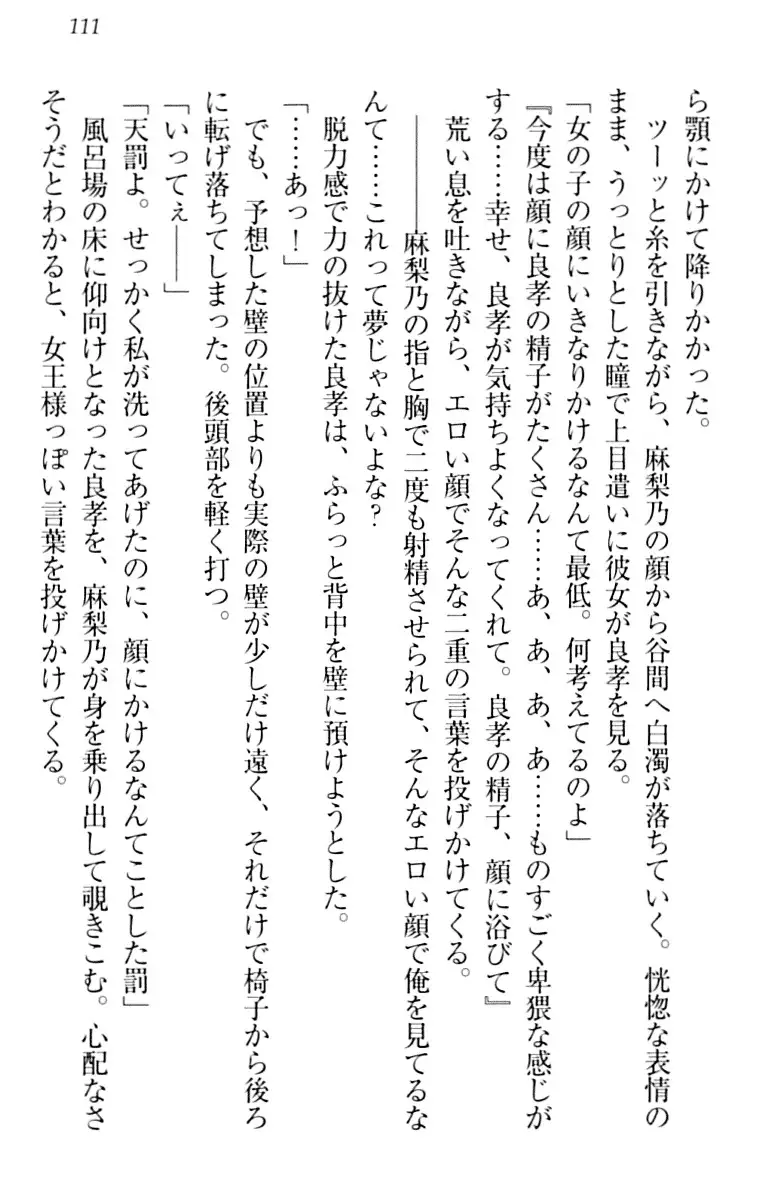 111
ら顎にかけて降りかかった。
ツーッと糸を引きながら、麻梨乃の顔から谷間へ白濁が落ちていく。恍惚な表情の
まま、うっとりとした瞳で上目遣いに彼女が良孝を見る。
「女の子の顔にいきなりかけるなんて最低。何考えてるのよ」
『今度は顔に良孝の精子がたくさん……あ、あ、あ、あ……ものすごく卑猥な感じが
する……幸せ、良孝が気持ちよくなってくれて。良孝の精子、顔に浴びて』
荒い息を吐きながら、エロい顔でそんな二重の言葉を投げかけてくる。
――――麻梨乃の指と胸で二度も射精させられて、そんなエロい顔で俺を見てるな
んて……これって夢じゃないよな？
脱力感で力の抜けた良孝は、ふらっと背中を壁に預けようとした。
「……あっ！」
でも、予想した壁の位置よりも実際の壁が少しだけ遠く、それだけで椅子から後ろ
に転げ落ちてしまった。後頭部を軽く打つ。
「いってぇ――」
「天罰よ。せっかく私が洗ってあげたのに、顔にかけるなんてことした罰」
風呂場の床に仰向けとなった良孝を、麻梨乃が身を乗り出して覗きこむ。心配なさ
そうだとわかると、女王様っぽい言葉を投げかけてくる。